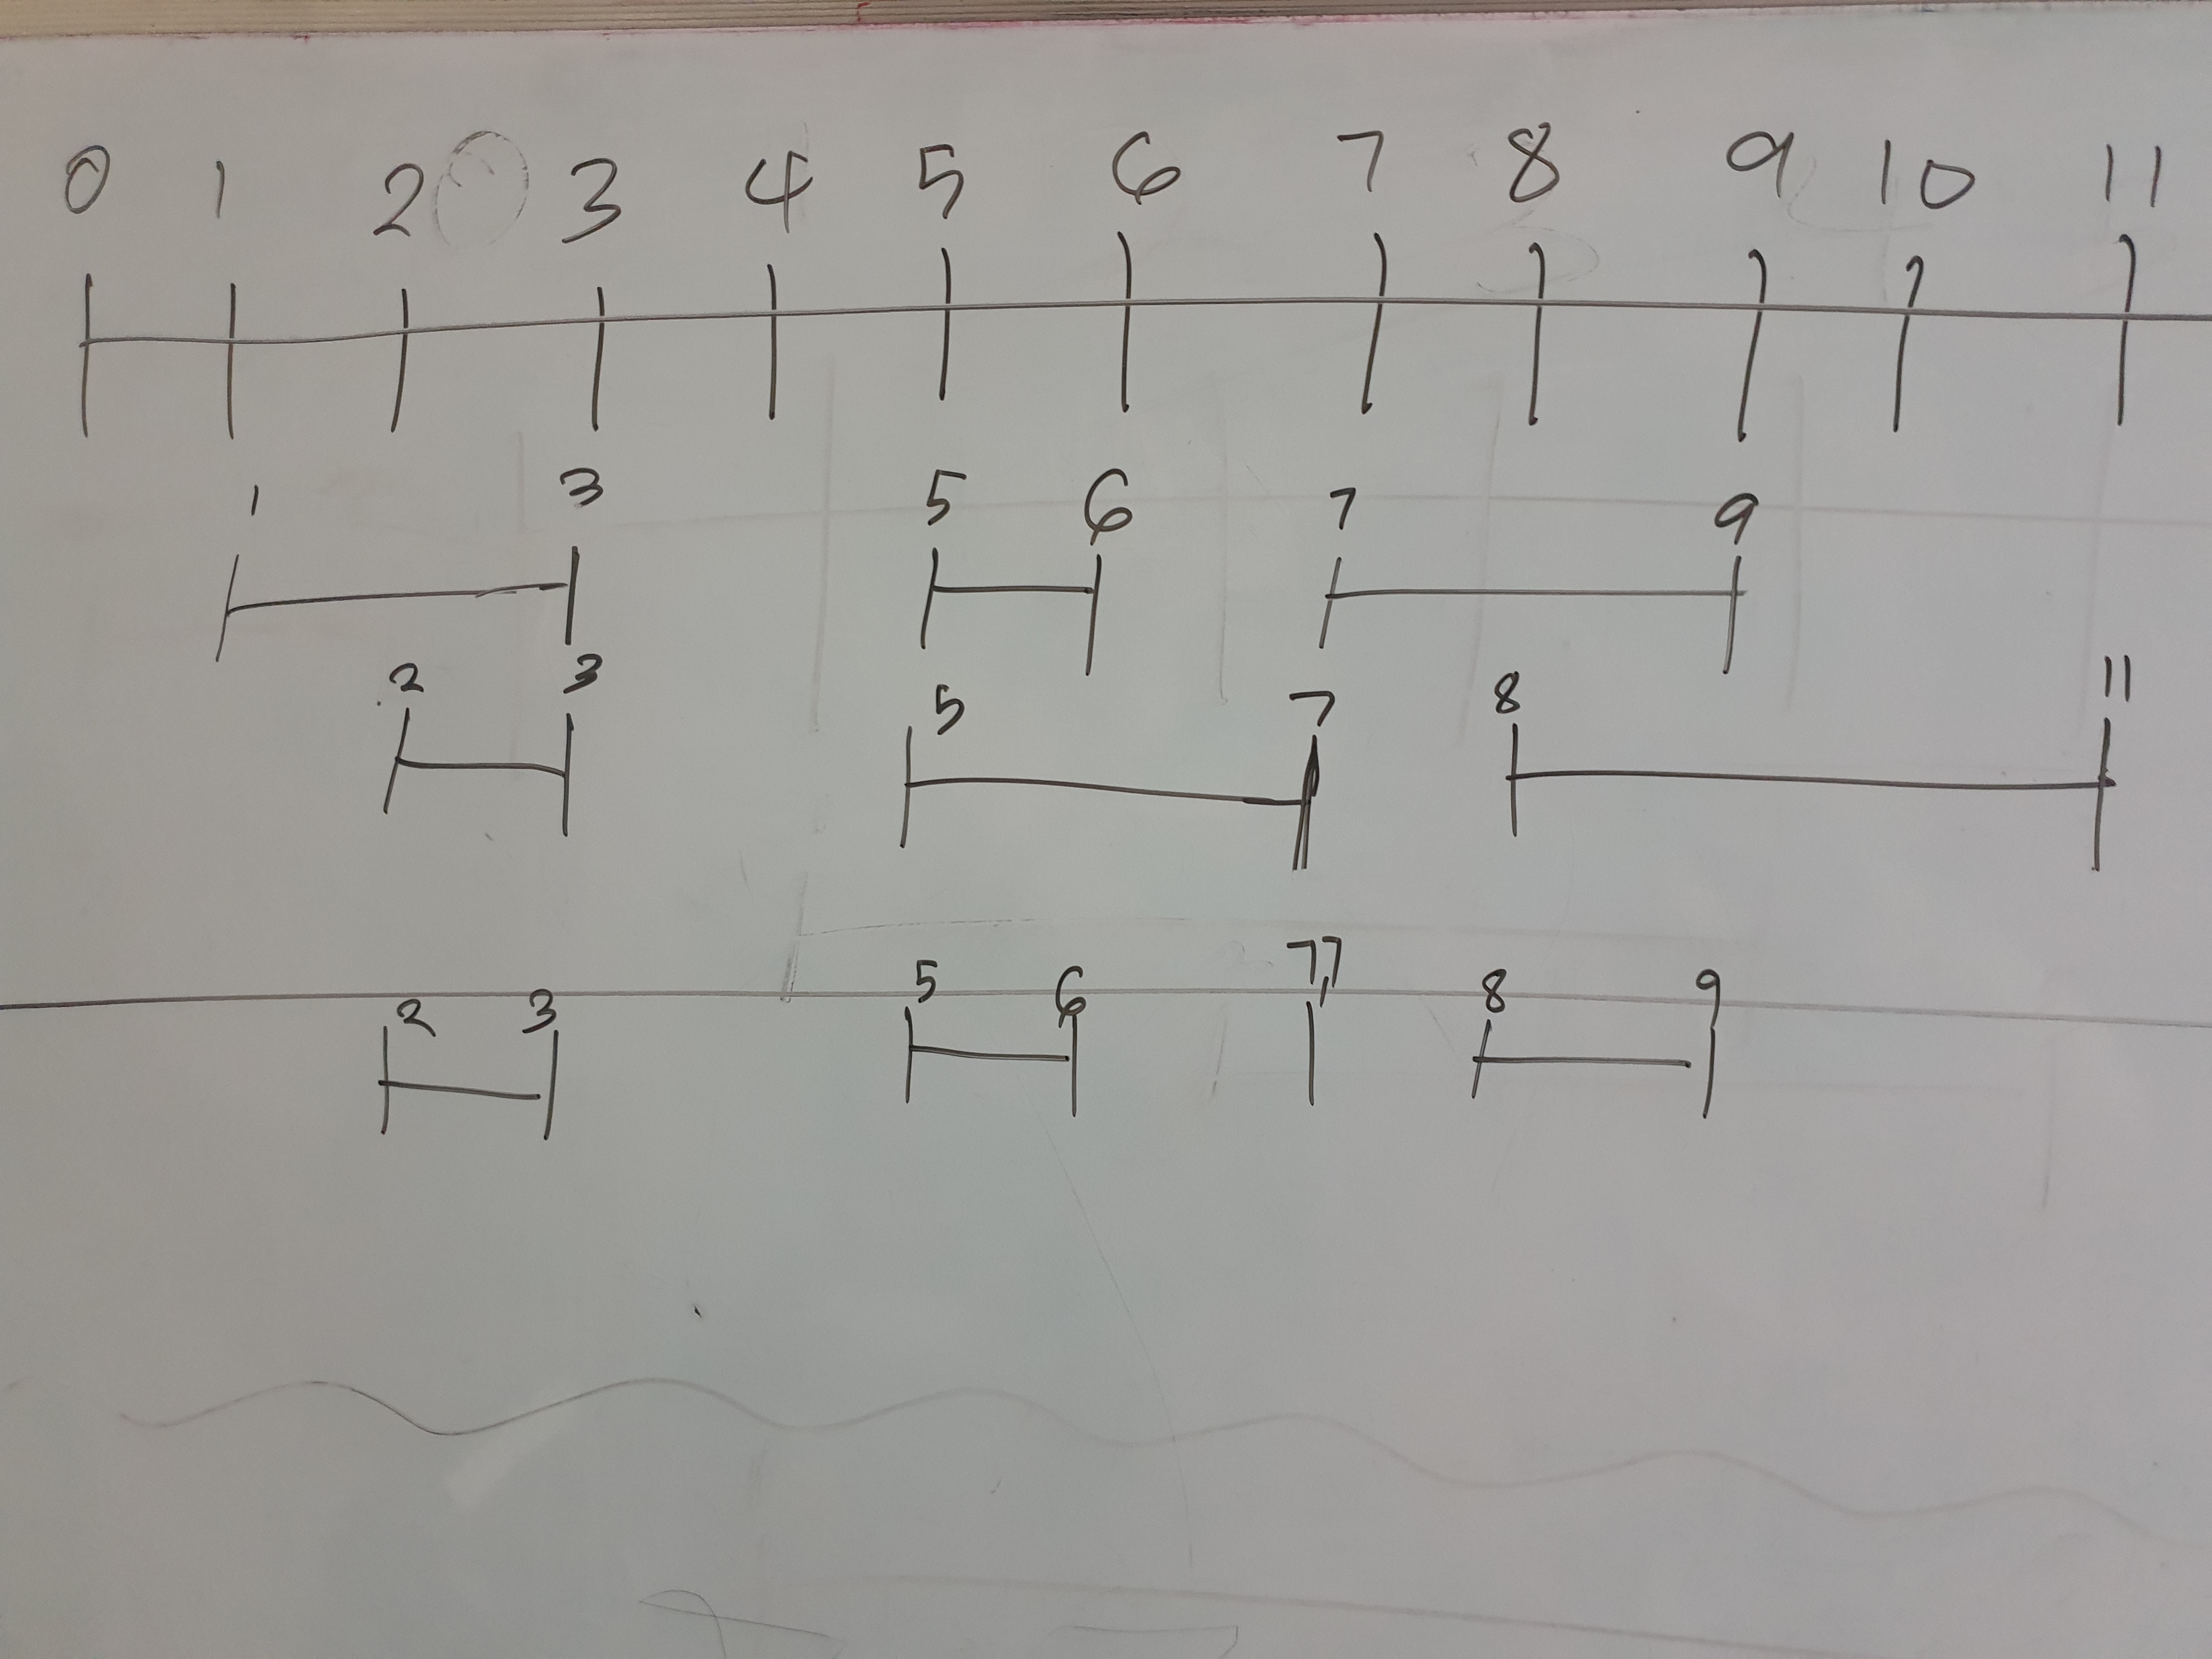 0 1 2 3 4 5 6 7 8 9 10 11
1 3 5 6 7 9
2 3 5 7 8 11
2 3 5 6 7,7 8 9